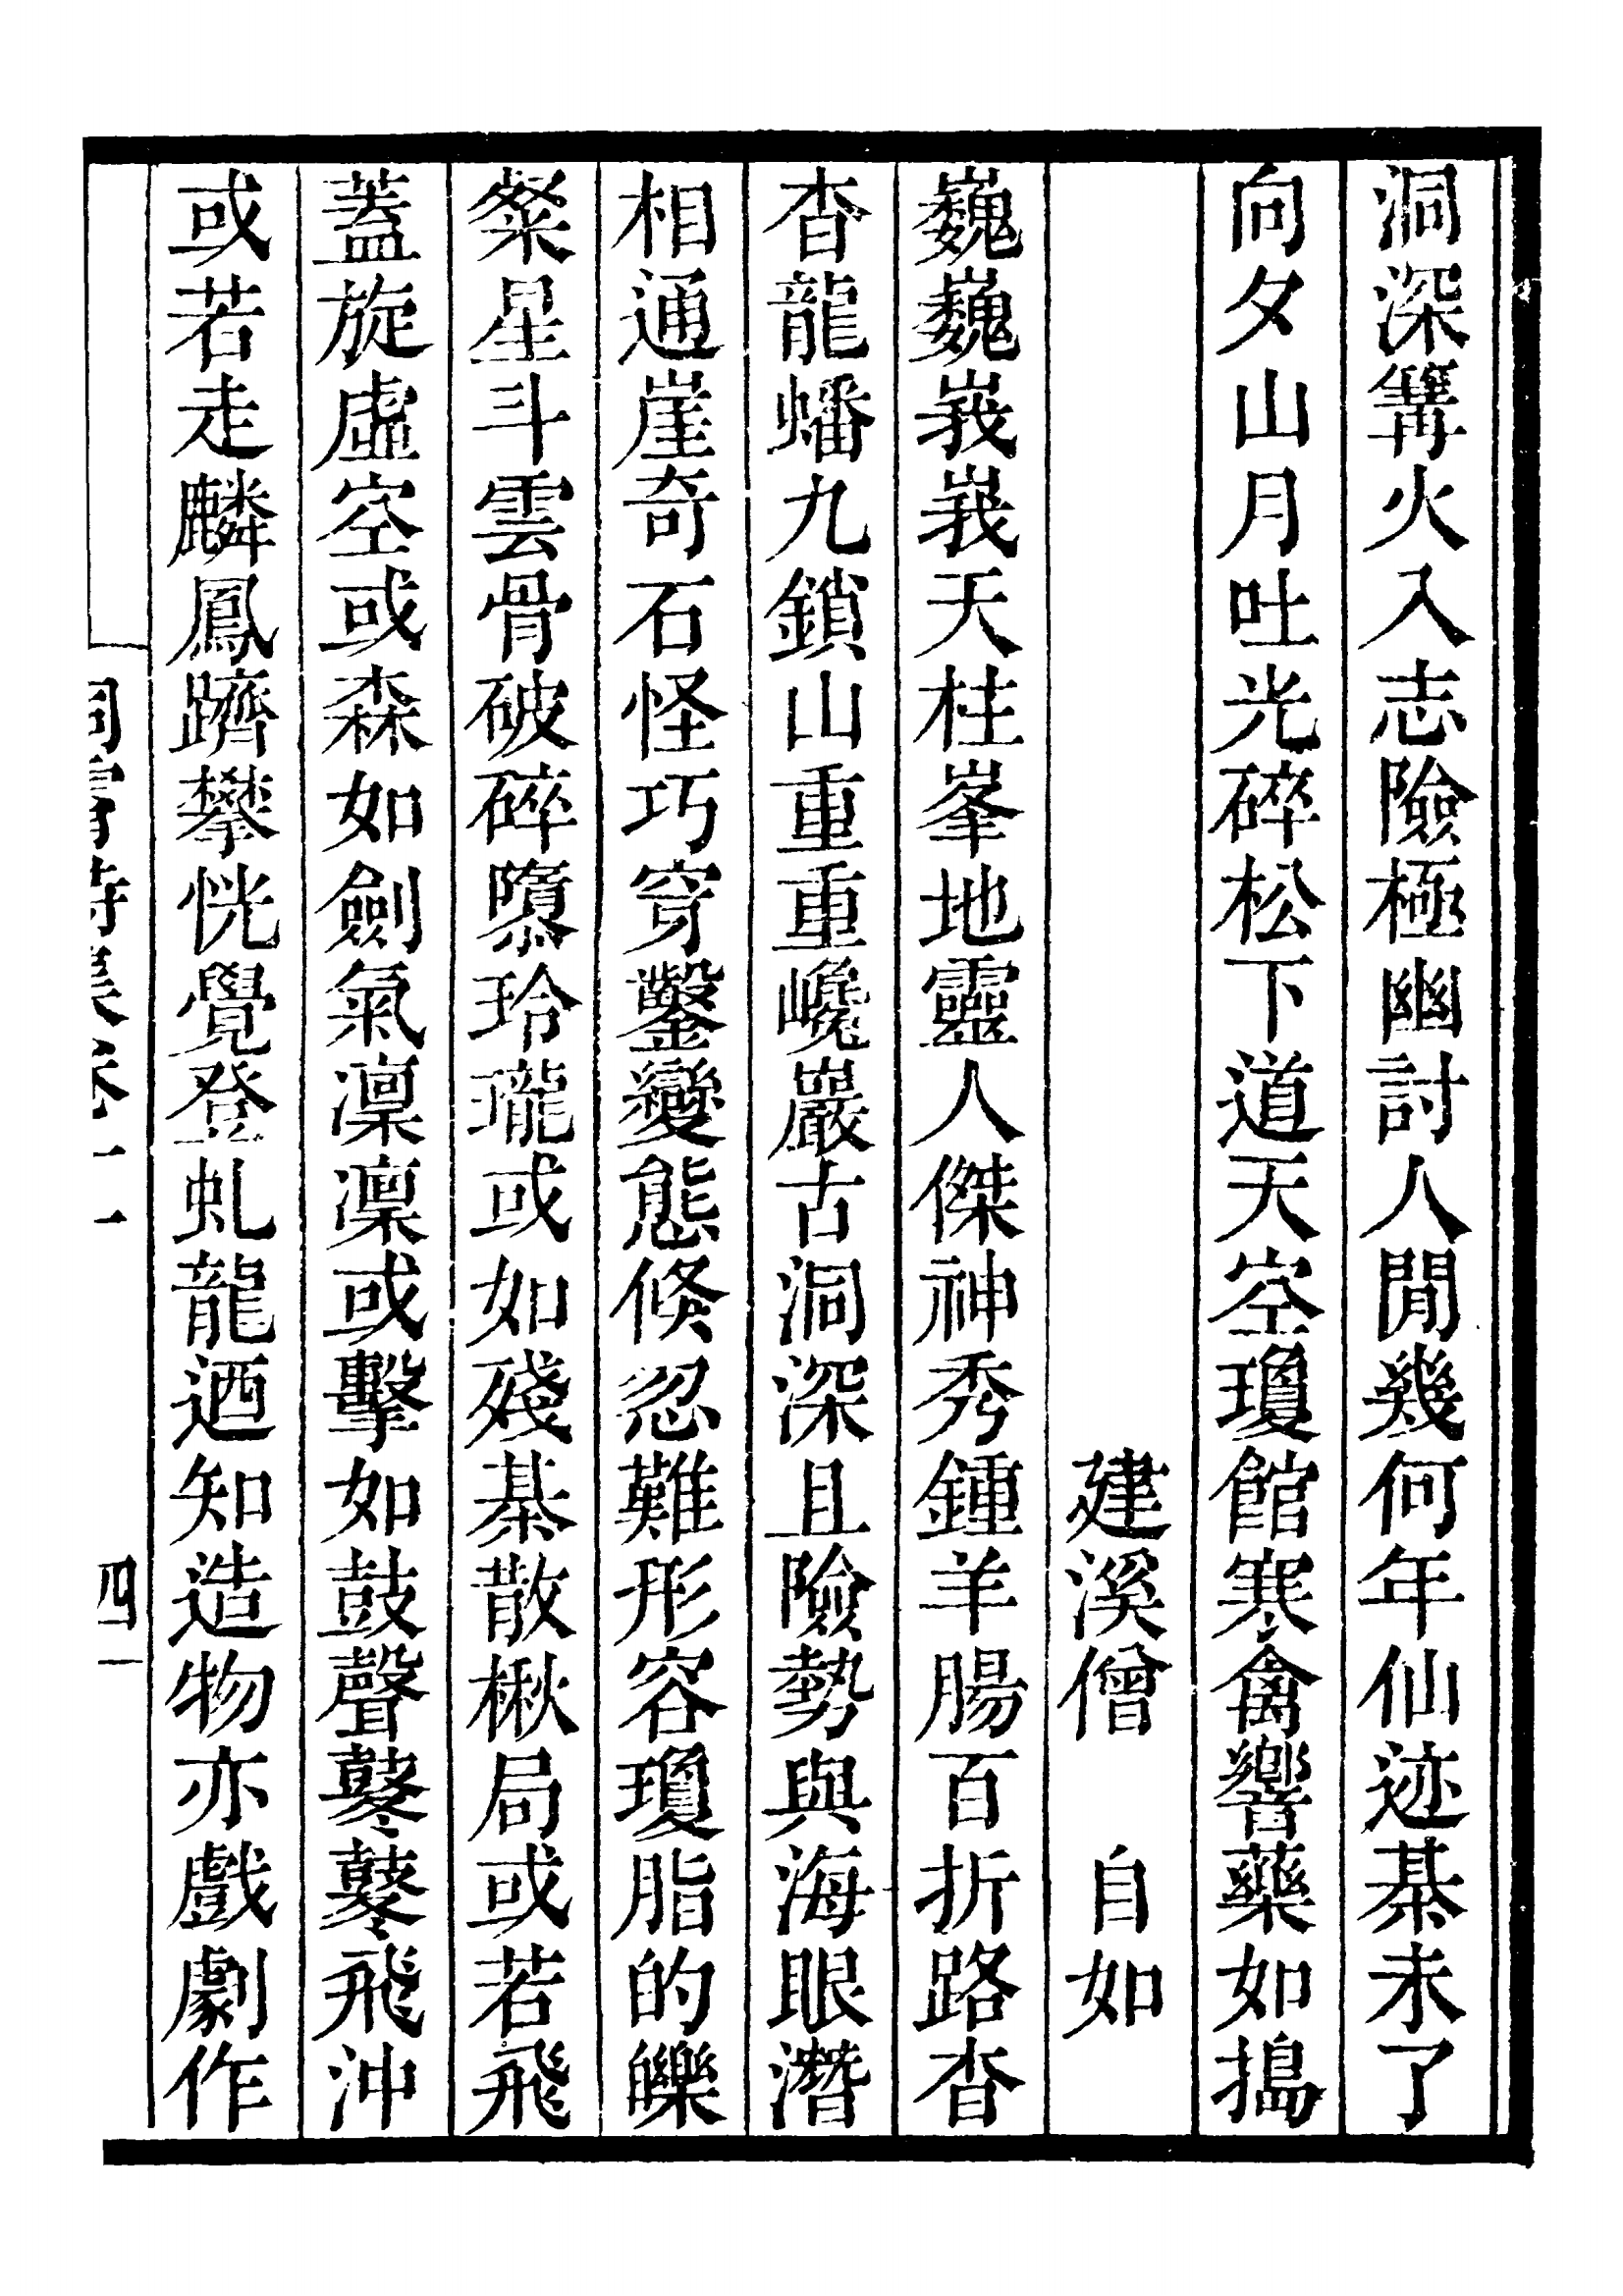 洞深篝火入志險極幽討人閒幾何年仙迹棊未了
向夕山月吐光碎松下道天空瓊館寒禽響藥如搗
建溪僧　自如
巍巍峩峩天柱峯地靈人傑神秀鍾羊腸百折路杳
杳龍蟠九鎖山重重巉巖古洞深且險勢與海眼潛
相通崖奇石怪巧穿鑿變態倏忽難形容瓊脂的皪
粲星斗雲骨破碎隳玲瓏或如殘棊散楸局或若飛
蓋旋虛空或森如劍氣凜凜或擊如鼓聲鼕鼕飛沖
或若走麟鳳躋攀恍覺登虬龍迺知造物亦戲劇作
洞霄詩集卷十一
四